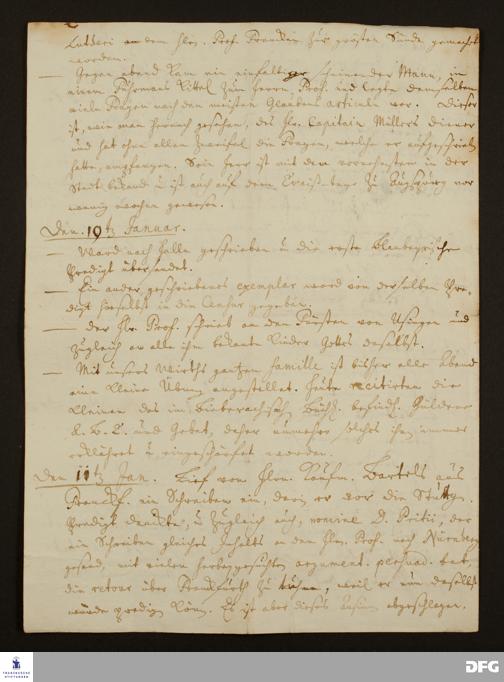 Lutheri an dem Hrn. Prof. Francken zur grösten Sünde gemacht
worden.
— Gegen abend kam ein einfältig scheinender Mann, in
einem Fuhrmans Kittel zum Herrn Prof. und legte demselben
viele Fragen nach den meisten Glaubens articuln vor. Dieser
ist, wie man hernach gesehen, des Hr. Capitain Müllers diener
und hat ohne allen Zweifel die Fragen, welche er aufgeschrieben
hatte, empfangen. Sein Herr ist mit den vornehmsten in der
Stadt bekand u. ist auch auf dem Crais-tage zu Augspurg vor
wenig wochen gewesen.
Den. 10 Januar.
— Ward nach Halle geschrieben u. die erste Blaubeyrische
Predigt übersendet.
— Ein ander geschriebenes exemplar ward von derselben Pre-
digt hieselbst in die Censur gegeben.
— der Hr. Prof. schrieb an den Fürsten von Usingen und
zugleich an alle ihm bekante Kinder Gottes daselbst.
— Mit unsers Wirths gantzen famille ist bisher alle Abend
eine kleine Übung angestellet. Heute recitirten die
Kleinen das im Biberachischen befindl. Güldene
A. B. C. und Gebet, daher nunmehr solches ihnen immer
erklähret u. eingeschärfet worden.
Den 11 Jan. Lief von Hrn. Kaufm. Bartels aus
Franckf. ein Schreiben ein, darin er vor die Stuttg.
Predigt danckte, u. zugleich auch, nomine D. Pritii, der
ein Schreiben gleiches Inhalts an den Hn. Prof. nach Nürnberg
gesand, mit vielen herbeygesuchten argument. persuad. bat,
die retour über Franckfurth zu nehmen, weil er nun daselbst
würde predigen können. Es ist aber dieses Ansinnen abgeschlagen.
FRANCKESCHE
STIFTUNGEN
DFG